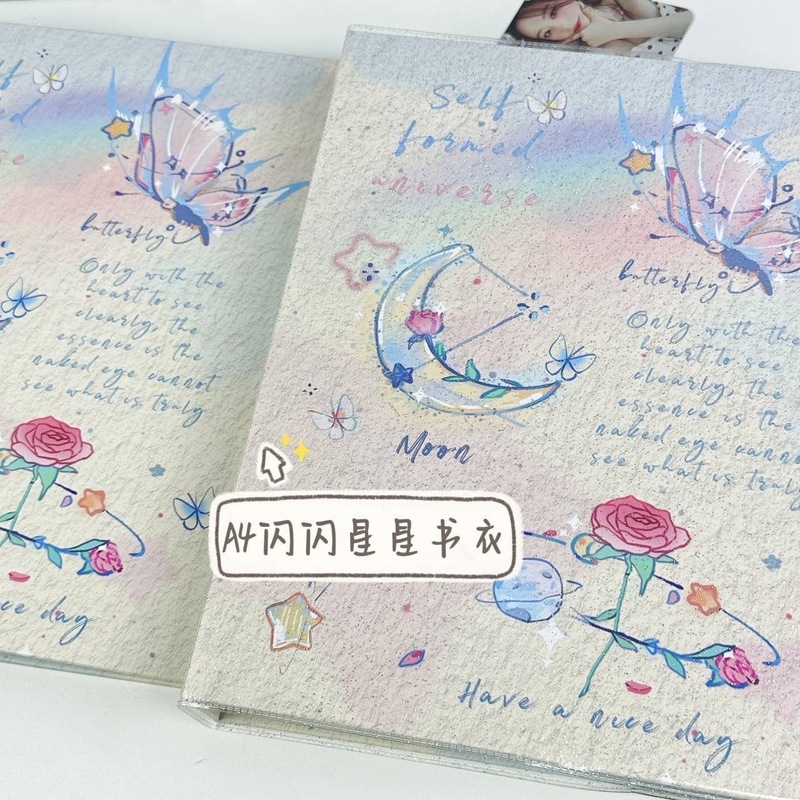 butterfly
Only with the
heart to see
clearly, the
essence is the
naked eye cannot
see what is truly
nice day
Self
formed
universe
butterfly
Only with the
heart to see
clearly, the
essence is the
naked eye cannot
see what is truly
Moon
A4闪闪星星书衣
Have a nice day